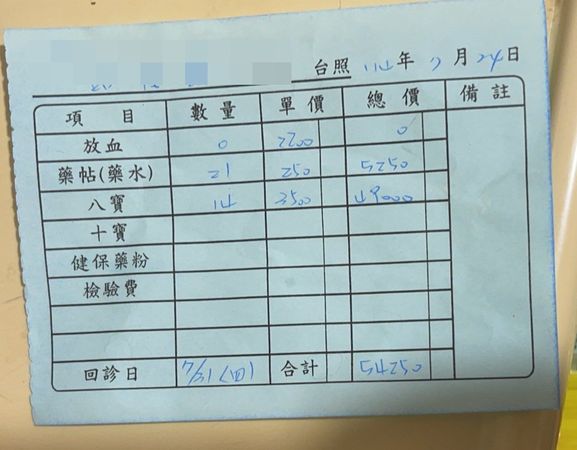 台照 114年7月24日
項目 數量 單價 總價 備註
放血 0 2200 0
藥帖(藥水) 21 250 5250
八寶 14 3500 49000
十寶
健保藥粉
檢驗費
回診日 7/31(四) 合計 54250